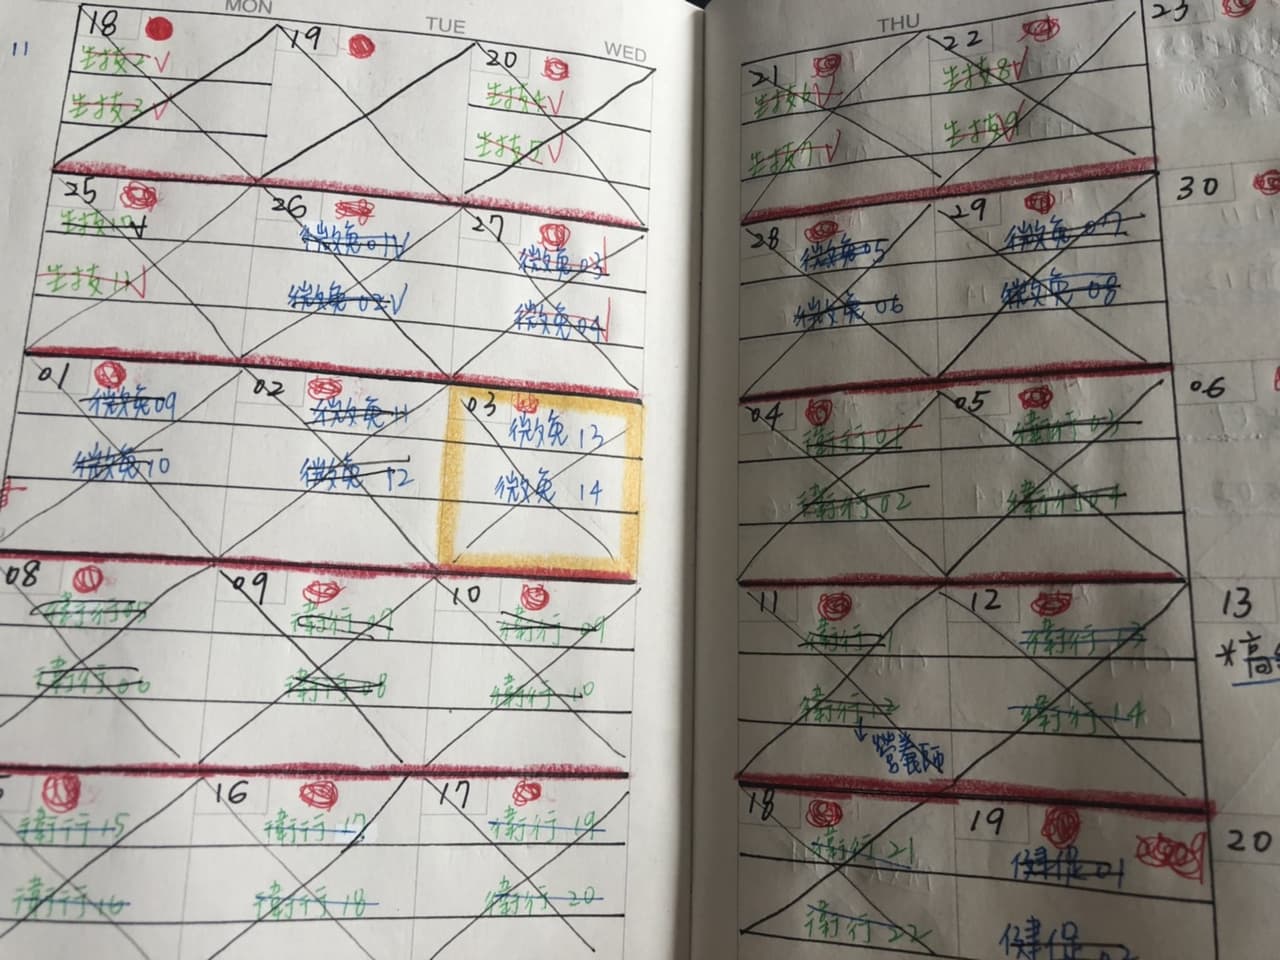 MON
TUE
WED
THU
11
18
生技2
生技3
19
20
生技4
生技5
21
生技6
生技7
22
生技8
生技9
23
25
生技
生技11
26
微免01
微免02
27
微免03
微免04
28
微免05
微免06
29
微免07
微免08
30
01
微免09
微免10
02
微免11
微免12
03
微免13
微免14
04
衛行01
衛行02
05
衛行03
衛行04
06
08
衛行
衛行06
09
衛行07
衛行08
10
衛行09
衛行10
11
衛行11
衛行12
↓
營養師
12
衛行13
衛行14
13
*高
衛行15
衛行16
16
衛行17
衛行18
17
衛行19
衛行20
18
衛行21
衛行22
19
健保01
健保02
20